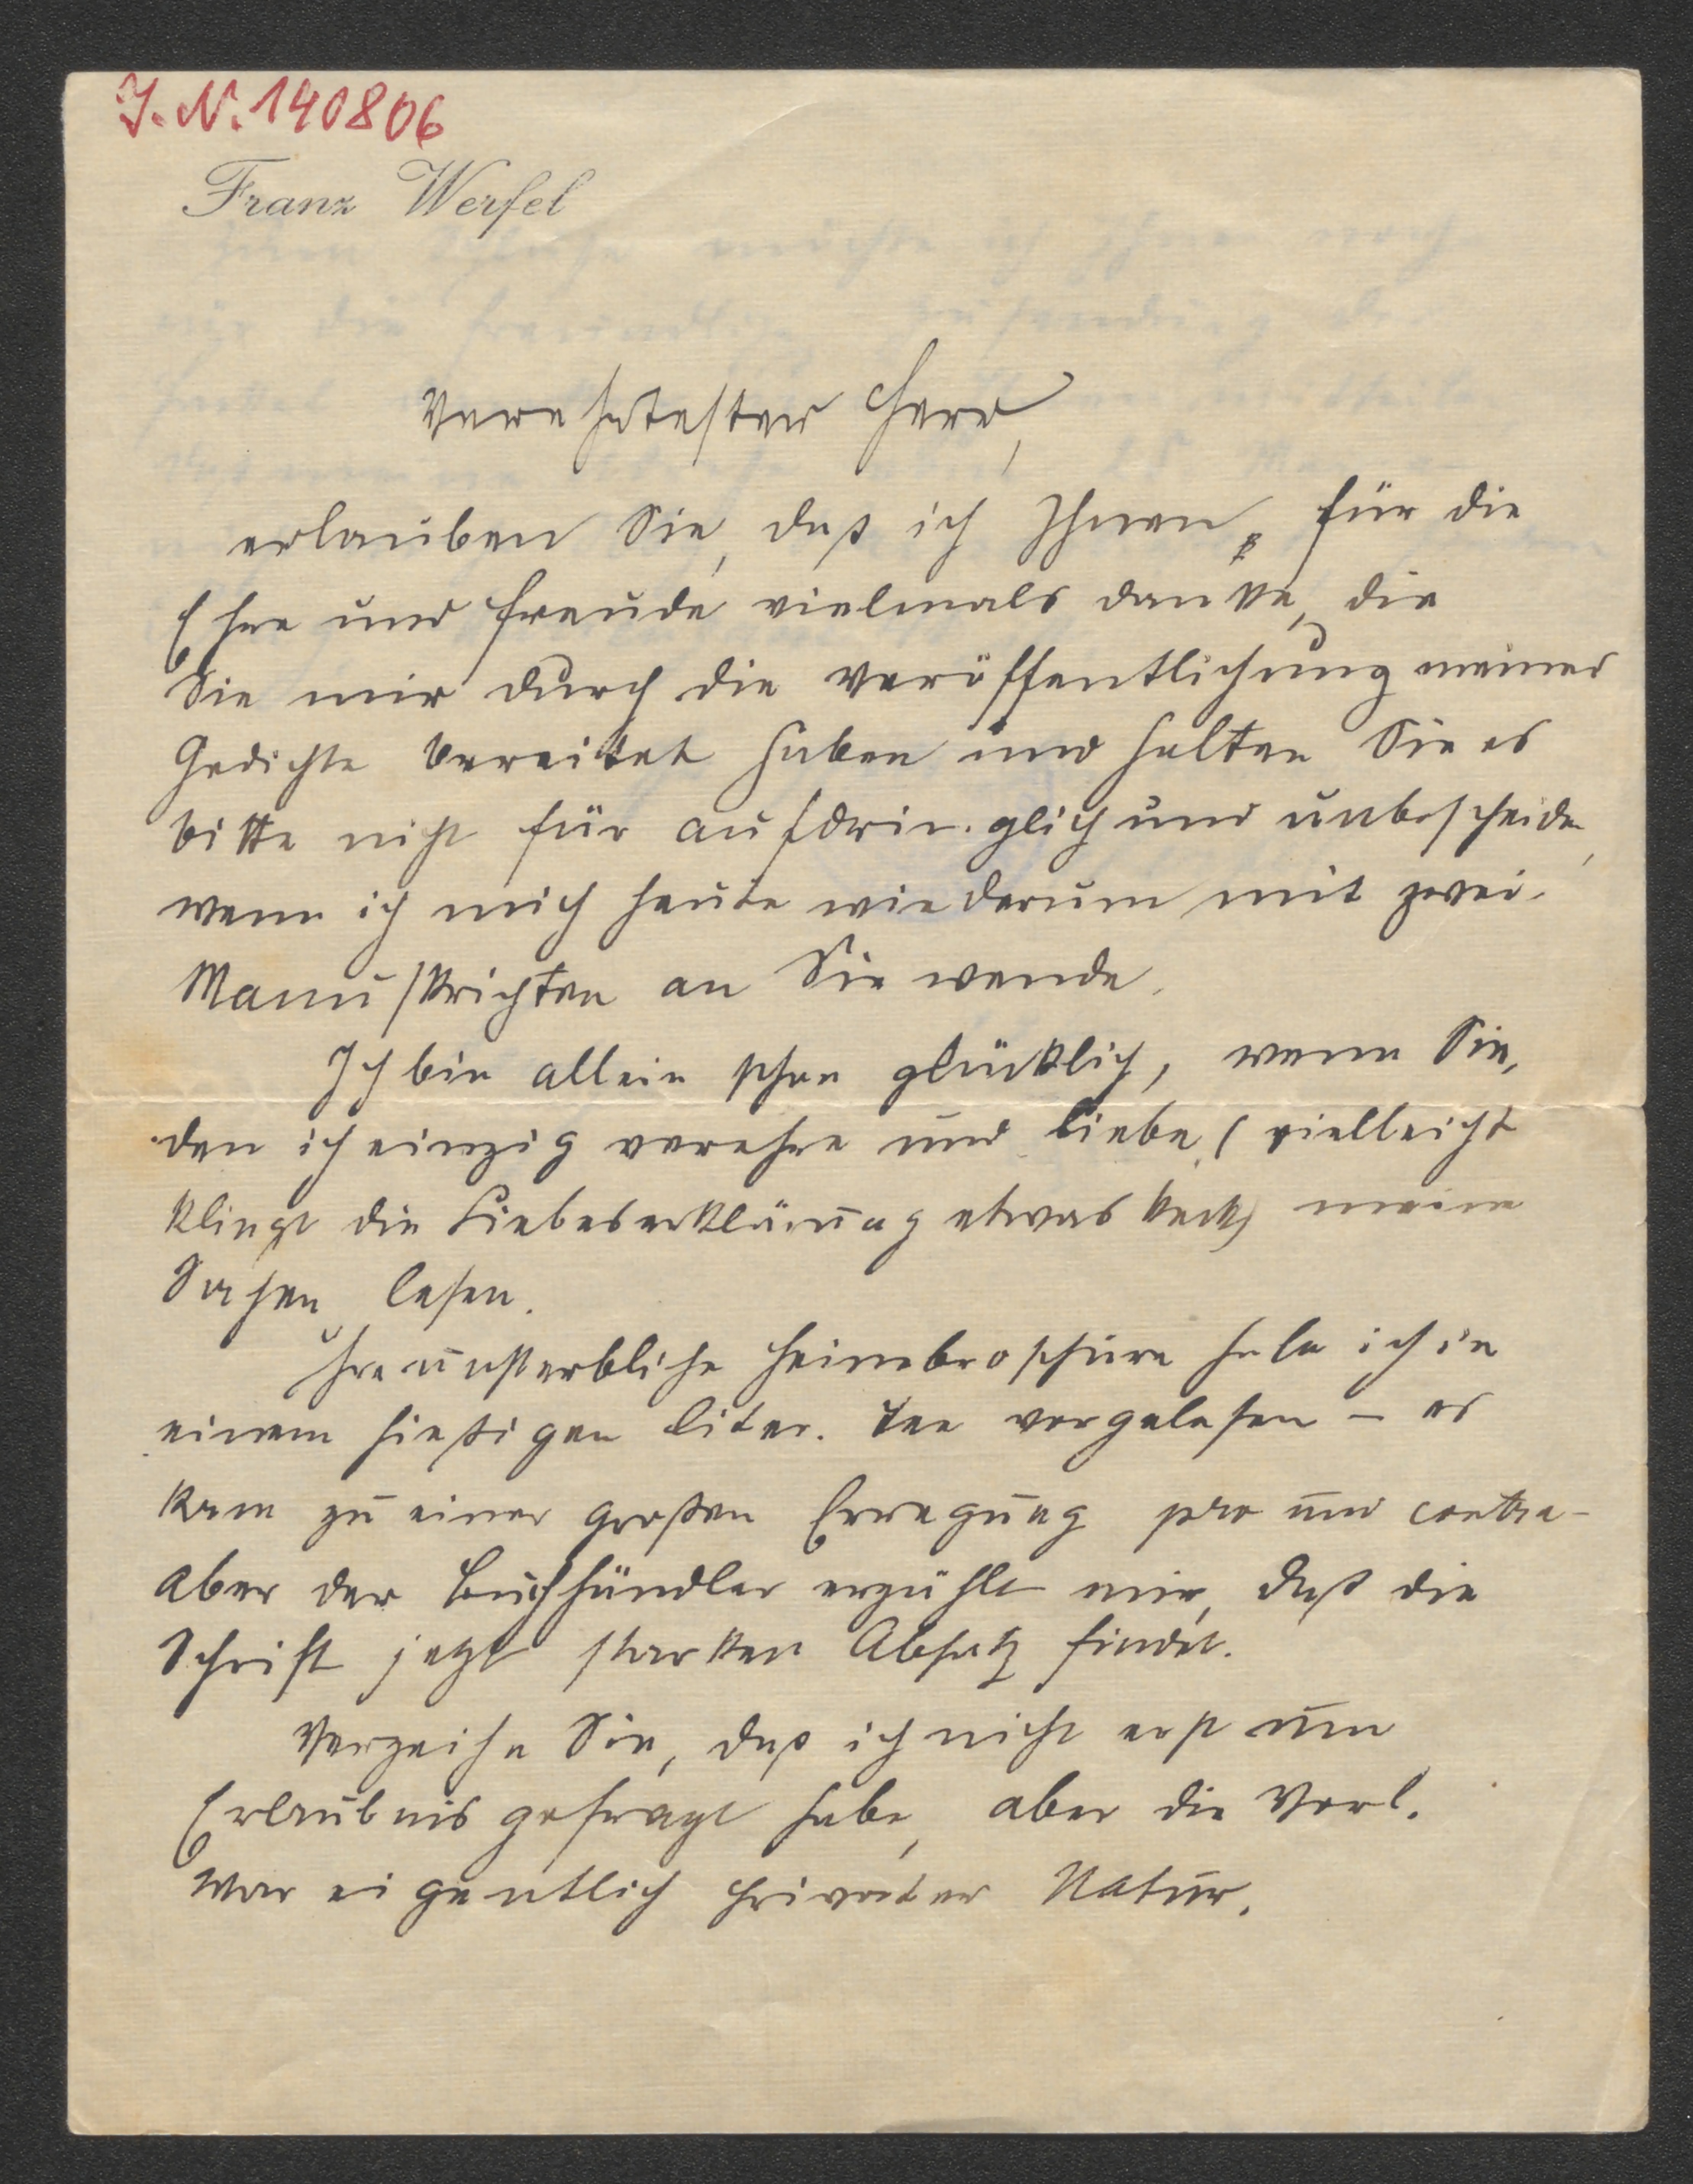 J. N. 140806
Franz Werfel
Verehrtester Herr,
erlauben Sie, daß ich Ihnen für die
Ehre und Freude vielmals danke, die
Sie mir durch die Veröffentlichung meiner
Gedichte bereitet haben und halten Sie es
bitte nicht für aufdringlich und unbescheiden,
wenn ich mich heute wiederum mit zwei
Manuskripten an Sie wende.
Ich bin allein schon glücklich, wenn Sie,
den ich einzig verehre und liebe, (vielleicht
klingt die Liebeserklärung etwas keck) meine
Sachen lesen.
Ihre unsterbliche Heinebroschüre habe ich in
einem hießigen liter. Tee vorgelesen – es
kam zu einer großen Erregung pro und contra –
aber der Buchhändler erzählt mir, daß die
Schrift jetzt starken Absatz findet.
Verzeihn Sie, daß ich nicht erst um
Erlaubnis gefragt habe, aber die Vorl.
war eigentlich privater Natur.